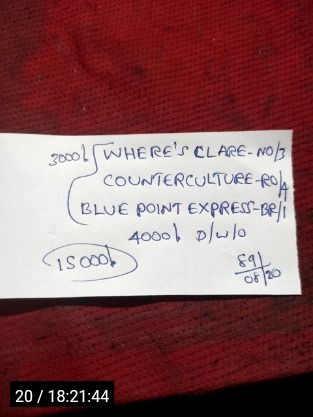 3000/- WHERE'S CLARE-NO/3
COUNTERCULTURE-RO/4
BLUE POINT EXPRESS-BR/1
4000/- D/W/O
15000/-
89/
08/20
20 / 18:21:44